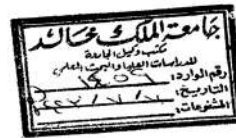 جامعة الملك خالد
مكتب وكيل الجامعة
للدراسات العليا والبحث العلمي
رقم الوارد:
التاريخ:
المشفوعات: